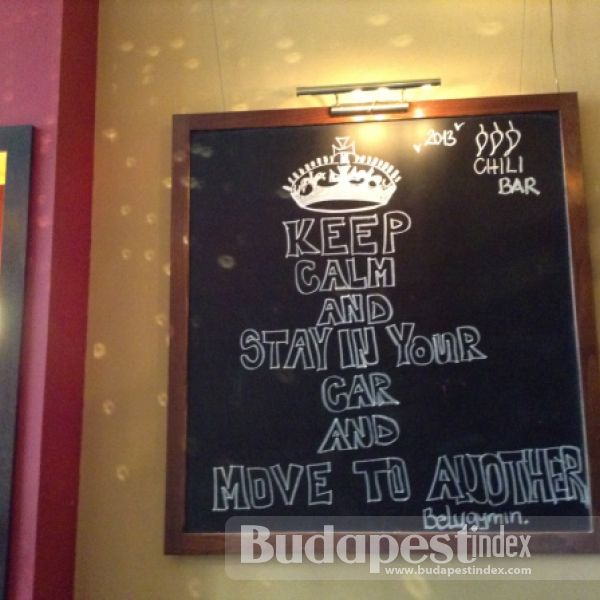 2013
CHILI
BAR
KEEP
CALM
AND
STAY IN YOUR
CAR
AND
MOVE TO ANOTHER
Belügymin.
Budapestindex
www.budapestindex.com